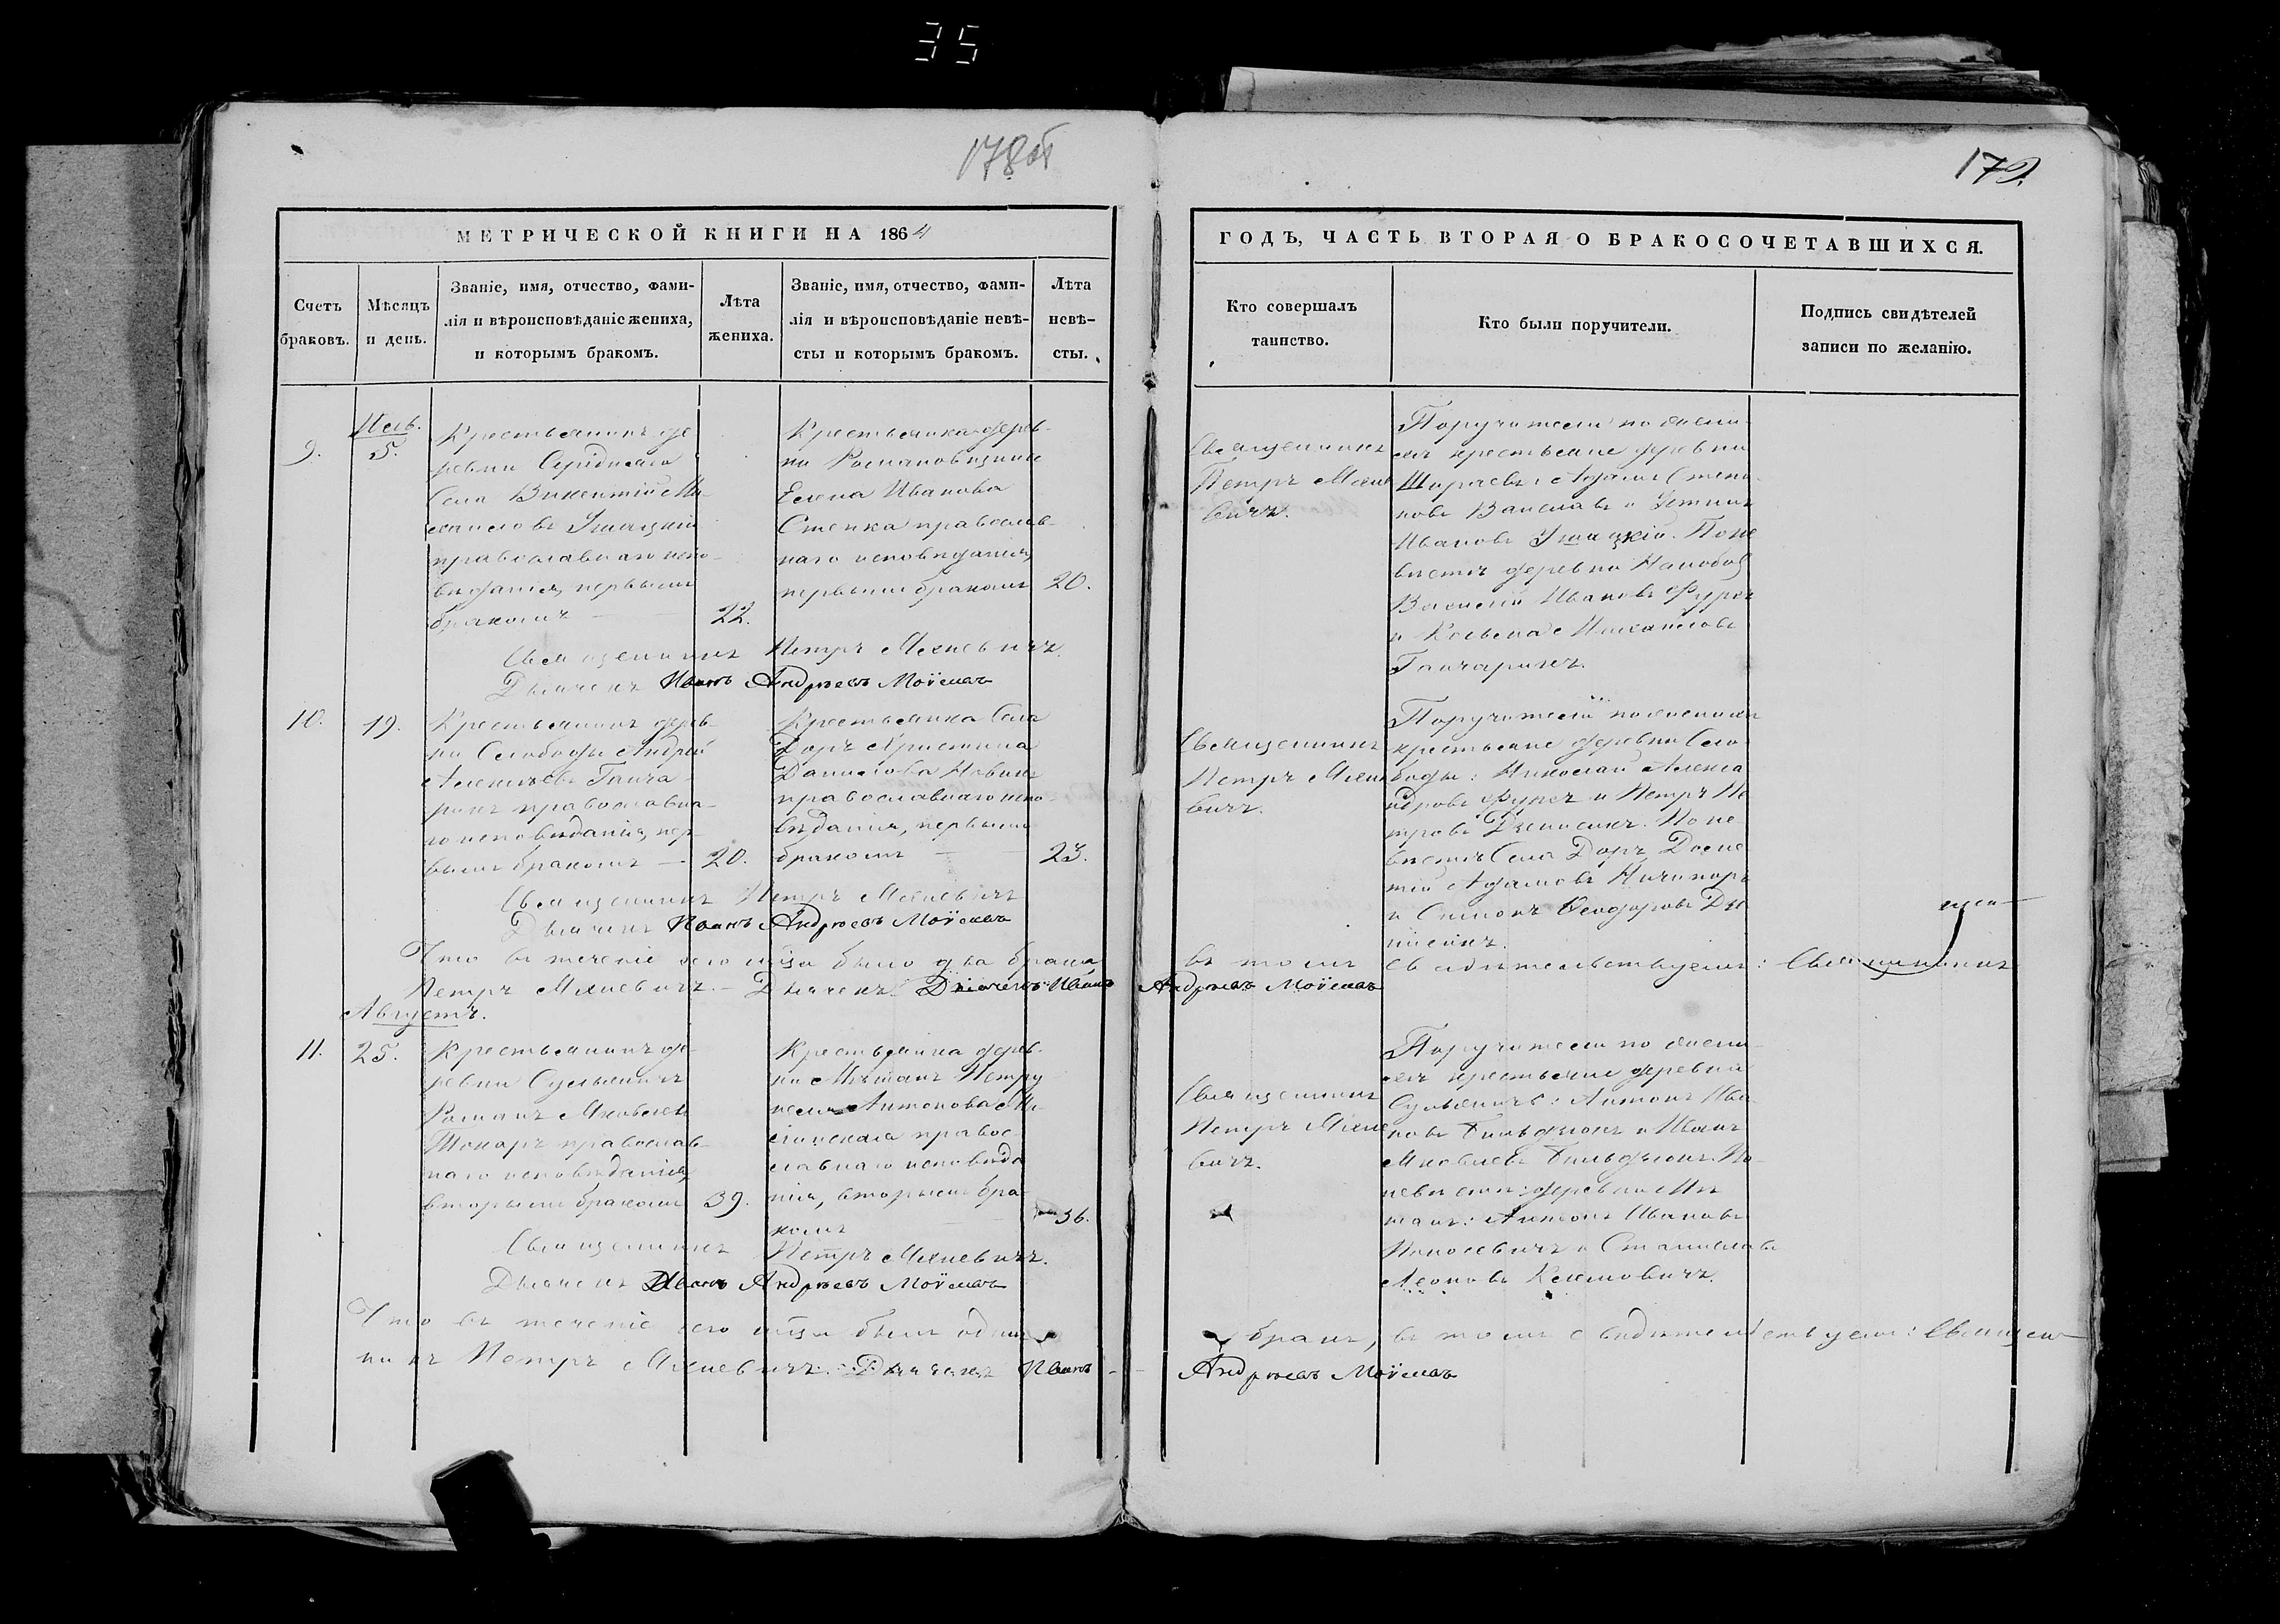 35
178об
179.
МЕТРИЧЕСКОЙ КНИГИ НА 1864
ГОДЪ, ЧАСТЬ ВТОРАЯ О БРАКОСОЧЕТАВШИХСЯ.
Счетъ
браковъ.
Мѣсяцъ
и день.
Званіе, имя, отчество, фами-
лія и вѣроисповѣданіе жениха,
и которымъ бракомъ.
Лѣта
жениха.
Званіе, имя, отчество, фами-
лія и вѣроисповѣданіе невѣ-
сты и которымъ бракомъ.
Лѣта
невѣ-
сты.
Кто совершалъ
таинство.
Кто были поручители.
Подпись свидѣтелей
записи по желанію.
9.
5.
Крестьянинъ де
ревни
Села Викентій Ми
хаиловъ
православнаго испо-
вѣданія, первымъ
бракомъ
22.
Крестьянка дерев-
ни
Елена Иванова
Степка православ-
наго исповѣданія,
первымъ бракомъ
20.
Священникъ
Петръ Михне
вичъ.
Поручители по жени-
хѣ крестьяне деревни
Адамъ Степа-
новъ и Устинъ
Ивановъ По не
вѣстѣ деревни
Василій Ивановъ Фурсъ
и Козьма Михаиловъ
Ганчарикъ.
Священникъ Петръ Михневичъ
Дьячекъ Иванъ Андреевъ Моисеевъ
10.
19.
Крестьянинъ дерев-
ни Слободы Андрей
Алексѣевъ Ганча-
рикъ православна-
го исповѣданія, пер-
вымъ бракомъ
20.
Крестьянка Села
Доръ Христина
Данилова
православнаго испо-
вѣданія, первымъ
бракомъ
23.
Священникъ
Петръ Михне
вичъ.
Поручители по женихѣ
крестьяне деревни Сло-
боды: Николай Алекса
ндровъ Фурсъ и Петръ Пе
тровъ По не-
вѣстѣ Села Доръ,
Адамовъ
и Симонъ Ѳеодоровъ
Священникъ Петръ Михневичъ
Дьячекъ Иванъ Андреевъ Моисеевъ
Что въ теченіе сего м͠ца было два брака
въ томъ свидѣтельствуемъ: Священникъ
Петръ Михневичъ. Дьячекъ Иванъ
Андреевъ Моисеевъ
Августъ.
11.
25.
Крестьянинъ де-
ревни
Романъ Яковлевъ
Токарь православ-
наго исповѣданія,
вторымъ бракомъ
39.
Крестьянка дерев-
ни Петру
неля Антонова
правос-
лавнаго исповѣда
нія, вторымъ бра-
комъ
36.
Священникъ
Петръ Михне
вичъ.
Поручители по жени-
хѣ крестьяне деревни
Антонъ Ива-
новъ и Иванъ
Яковлевъ По
невѣстѣ: деревни
Антонъ Ивановъ
и Станиславъ
Леоновъ Климовичъ.
Священникъ Петръ Михневичъ.
Дьячекъ Иванъ Андреевъ Моисеевъ
Что въ теченіе сего м͠ца былъ одинъ
бракъ, въ томъ свидѣтельствуемъ: Священ-
никъ Петръ Михневичъ. Дьячекъ Иванъ
Андреевъ Моисеевъ